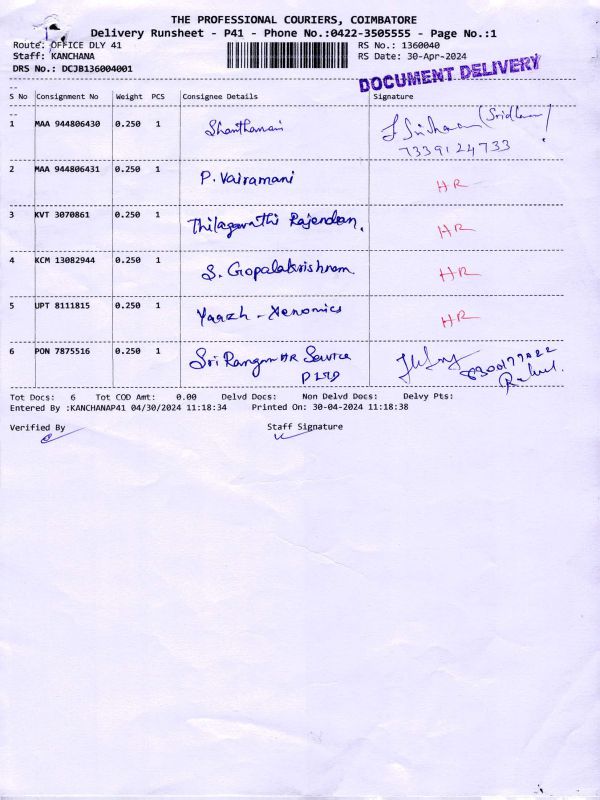 THE PROFESSIONAL COURIERS, COIMBATORE
Delivery Runsheet - P41 - Phone No.:0422-3505555 - Page No.:1
Route: OFFICE DLY 41 RS No.: 1360040
Staff: KANCHANA RS Date: 30-Apr-2024
DRS No.: DCJB136004001
DOCUMENT DELIVERY
S No Consignment No Weight PCS Consignee Details Signature
1 MAA 944806430 0.250 1 Shanthamani (Sridharan)
7339124733
2 MAA 944806431 0.250 1 P. Vairamani HR
3 KVT 3070861 0.250 1 Thilagavathi Rajendran. HR
4 KCM 13082944 0.250 1 S. Gopalakrishnan. HR
5 UPT 8111815 0.250 1 Yaazh - Xenomics HR
6 PON 7875516 0.250 1 Sri Rangan HR Service
Tot Docs: 6 Tot COD Amt: 0.00 Delvd Docs: Non Delvd Docs: Delvy Pts:
Entered By :KANCHANAP41 04/30/2024 11:18:34 Printed On: 30-04-2024 11:18:38
Verified By Staff Signature